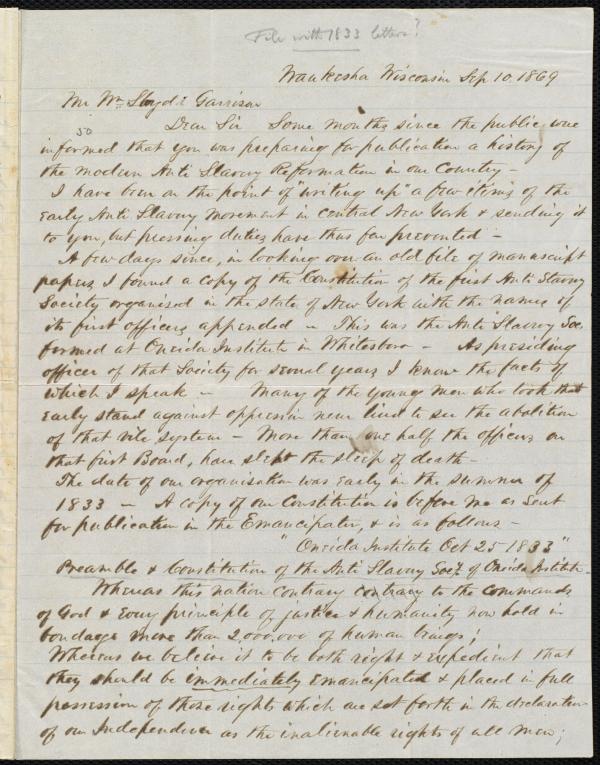 File with 1833 letters?
Waukesha Wisconsin Sep 10. 1869
Mr Wm Lloyd Garrison
50
Dear Sir Some months since the public were
informed that you was preparing for publication a history of
the modern Anti Slavery Reformation in our Country –
I have been on the point of "writing up" a few items of the
early Anti Slavery movement in central New York & sending it
to you, but pressing duties have thus far prevented –
A few days since, in looking over an old file of manuscript
papers, I found a copy of the Constitution of the first Anti Slavery
Society organised in the state of New York with the names of
its first officers appended – This was the Anti Slavery Soc
formed at Oneida Institute in Whitesboro – As presiding
officer of that Society for several years I know the facts of
which I speak – Many of the young men who took that
early stand against oppression never lived to see the abolition
of that vile system – More than one half the officers on
that first Board, have slept the sleep of death –
The date of our organisation was early in the summer of
1833 – A copy of our Constitution is before me as sent
for publication in the Emancipator, & is as follows –
"Oneida Institute Oct 25 1833"
Preamble & Constitution of the Anti Slavery Socy. of Oneida Institute.
Whereas this nation contrary contrary to the commands
of God & every principle of justice & humanity now hold in
bondage more than 2,000,000 of human beings;
Whereas we believe it to be both right & expedient that
they should be immediately emancipated & placed in full
possession of those rights which are set forth in the declaration
of our Independence as the inalienable rights of all men;